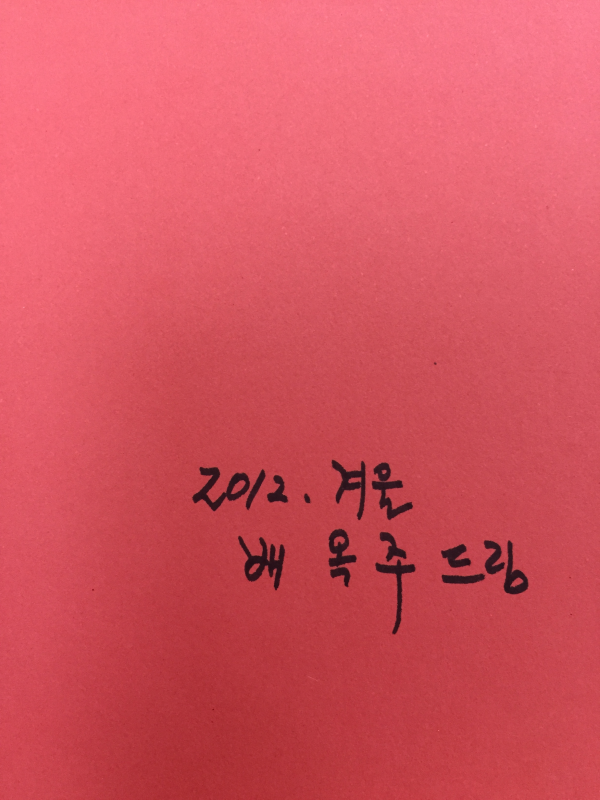 2012. 겨울
배 옥 주 드림